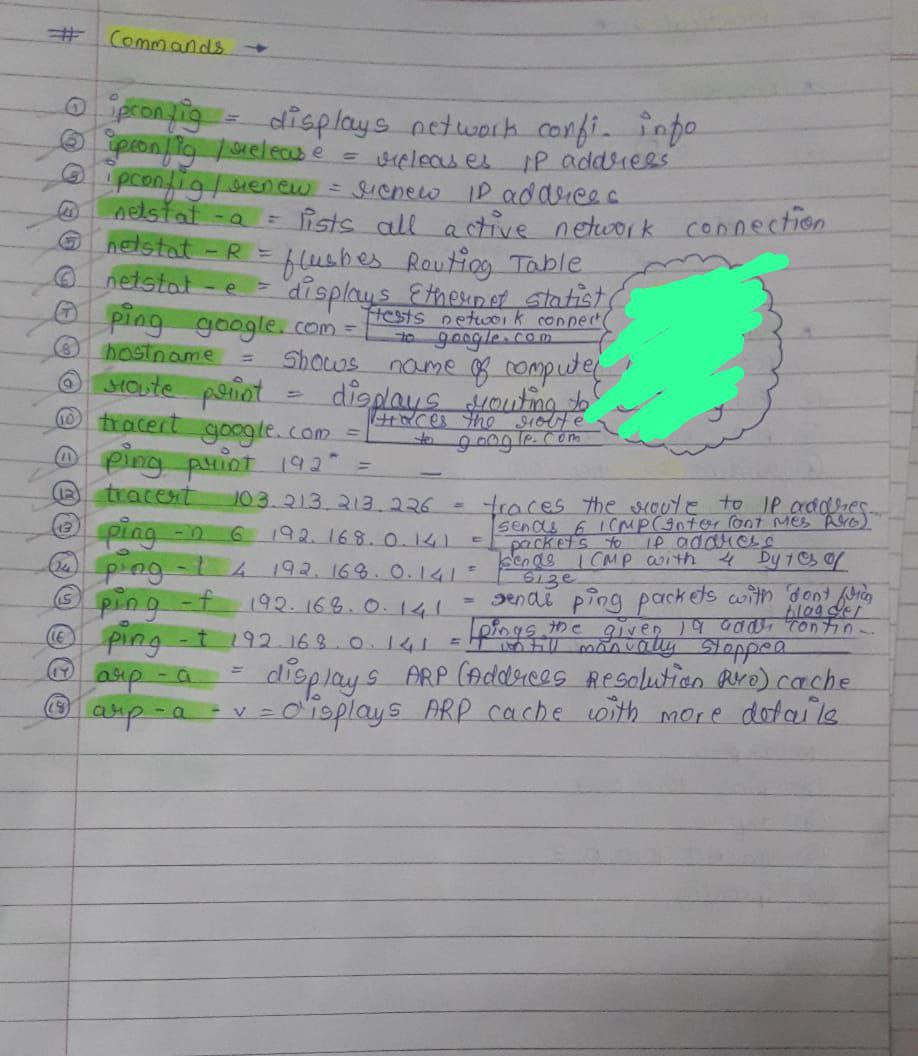 # Commands →
① ipconfig = displays network confi. info
② ipconfig /release = releases IP address
③ ipconfig/renew = renew IP address
④ netstat -a = lists all active network connection
⑤ netstat -R = flushes Routing Table
⑥ netstat -e = displays Ethernet Statist
⑦ ping google.com = tests network connect
to google.com
⑧ hostname = shows name of compute
⑨ route print = displays routing
⑩ tracert google.com = traces the route
to google.com
⑪ ping print 192" = —
⑫ tracert 103.213.213.226 = traces the route to IP addres..
⑬ ping -n 6 192.168.0.141 = sends 6 ICMP (Inter Cont Mes Pro)
packets to IP address
⑭ ping -l 4 192.168.0.141 = sends ICMP with 4 bytes of
size
⑮ ping -f 192.168.0.141 = sends ping packets with dont
⑯ ping -t 192.168.0.141 = pings the given IP addr contin...
until manually stopped
⑰ arp -a = displays ARP (Address Resolution Pro) cache
⑱ arp -a -v = Displays ARP cache with more details